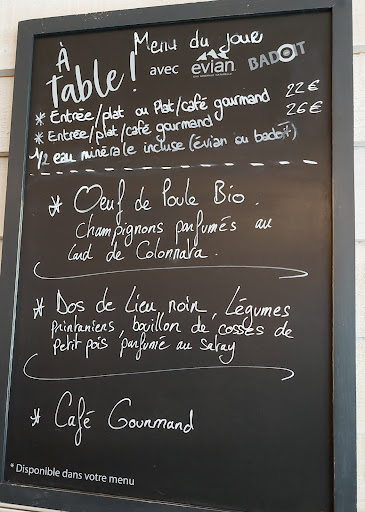 À Table !
Menu du jour
avec evian BADOIT
* Entrée/plat ou Plat/café gourmand 22€
* Entrée/plat/café gourmand 26€
1/2 eau minérale incluse (évian ou badoit)
* Oeuf de Poule Bio.
Champignons parfumés au
Lard de Colonnata.
* Dos de Lieu noir, Légumes
printaniers, bouillon de cosses de
Petit pois parfumé au
* Café Gourmand
* Disponible dans votre menu